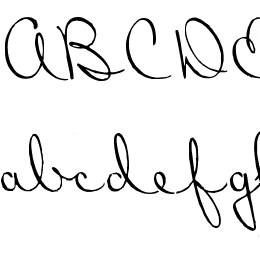 ABCDE
abcdefg